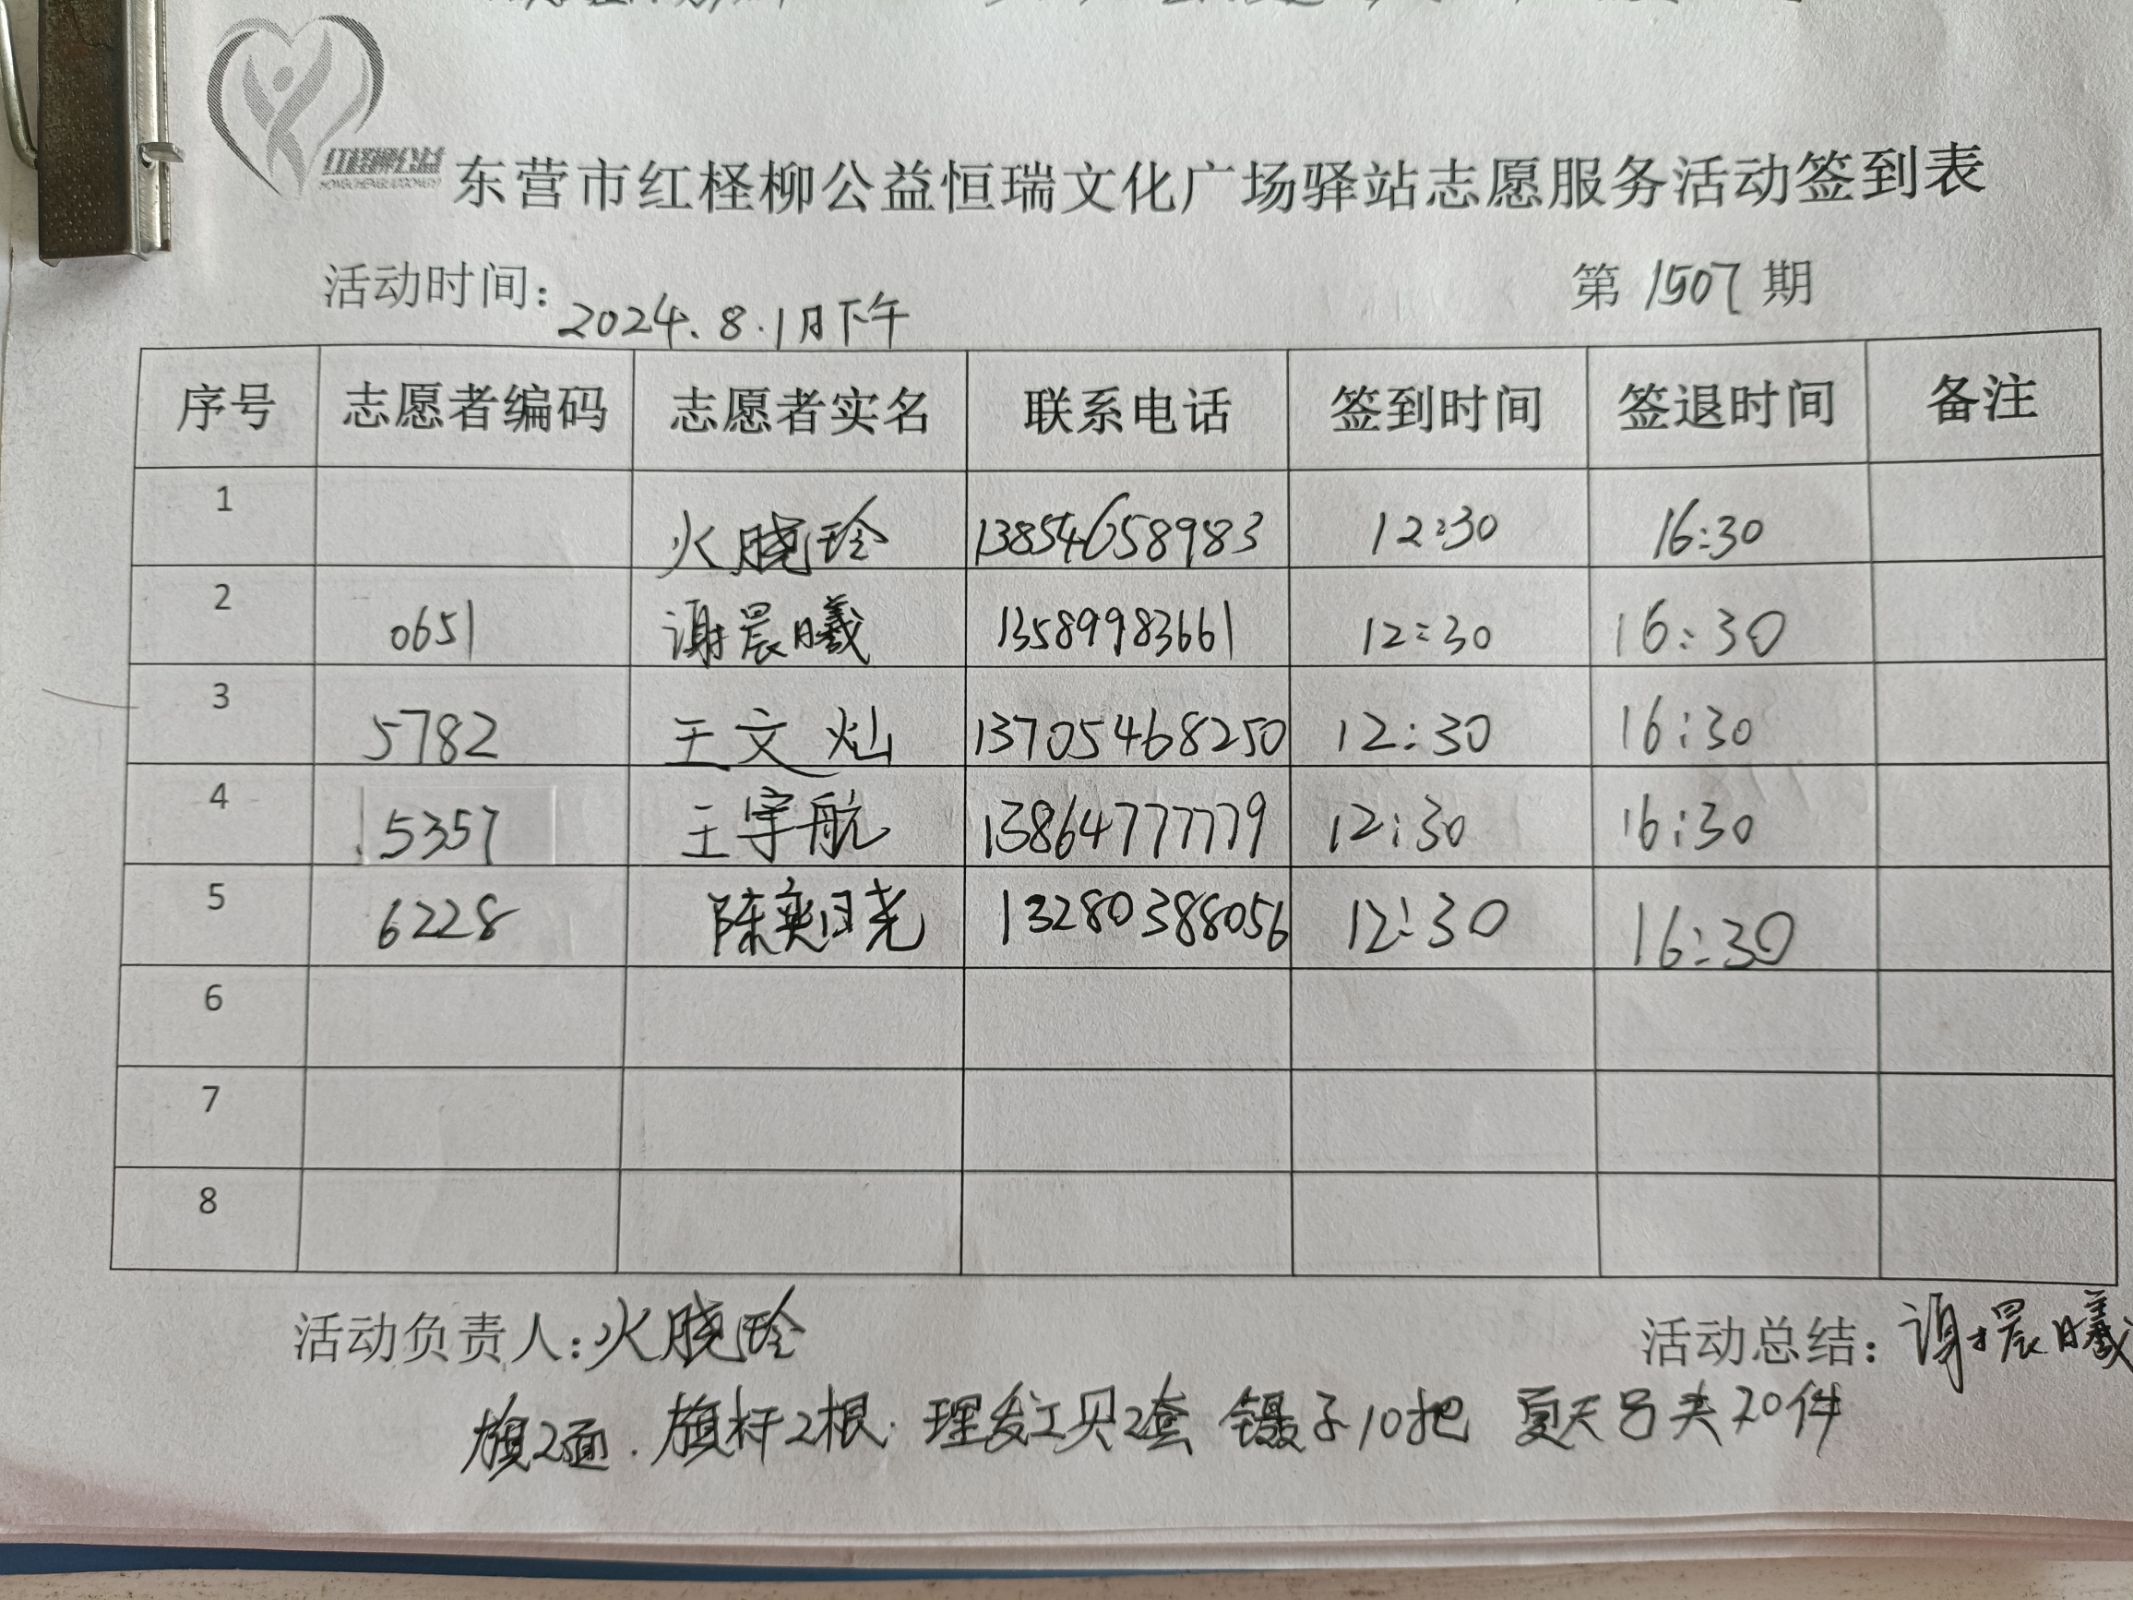 红柽柳公益
东营市红柽柳公益恒瑞文化广场驿站志愿服务活动签到表
活动时间: 2024.8.1日下午 第 1507 期
序号 志愿者编码 志愿者实名 联系电话 签到时间 签退时间 备注
1 火晓玲 13854658983 12:30 16:30
2 0651 谢晨曦 13589983661 12:30 16:30
3 5782 王文灿 13705468250 12:30 16:30
4 5357 王宇航 13864777779 12:30 16:30
5 6228 陈奕晓 13280388056 12:30 16:30
6
7
8
活动负责人: 火晓玲 活动总结: 谢晨曦
旗2面. 旗杆2根. 理发工贝2套 镊子10把 夏天 20件